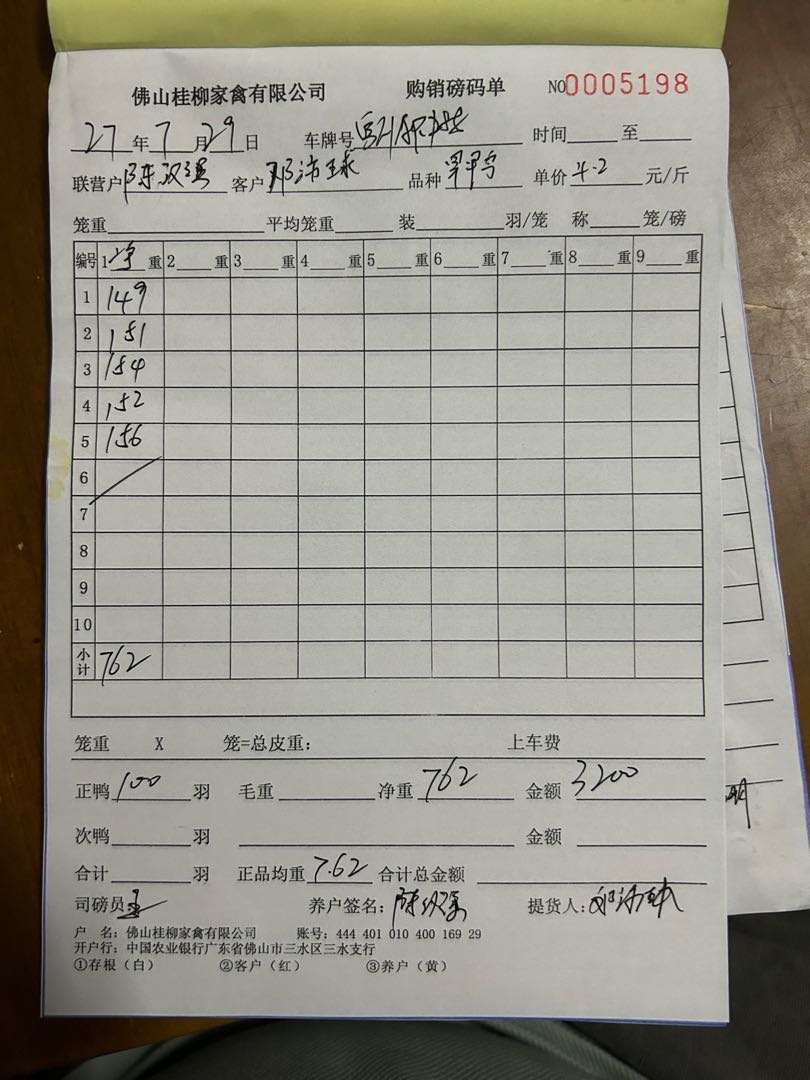 佛山桂柳家禽有限公司 购销磅码单 NO0005198
27 年 7 月 29 日 车牌号 时间 至
联营户 陈汉强 客户 邓沛球 品种 单价 4.2 元/斤
笼重 平均笼重 装 羽/笼 称 笼/磅
编号 1 净 重 2 重 3 重 4 重 5 重 6 重 7 重 8 重 9 重
1 149
2 151
3 154
4 152
5 156
6
7
8
9
10
小计 762
笼重 X 笼=总皮重: 上车费
正鸭 100 羽 毛重 净重 762 金额 3200
次鸭 羽 金额
合计 羽 正品均重 7.62 合计总金额
司磅员 养户签名: 陈汉强 提货人: 邓沛球
户 名: 佛山桂柳家禽有限公司 账号: 444 401 010 400 169 29
开户行: 中国农业银行广东省佛山市三水区三水支行
①存根(白) ②客户(红) ③养户(黄)